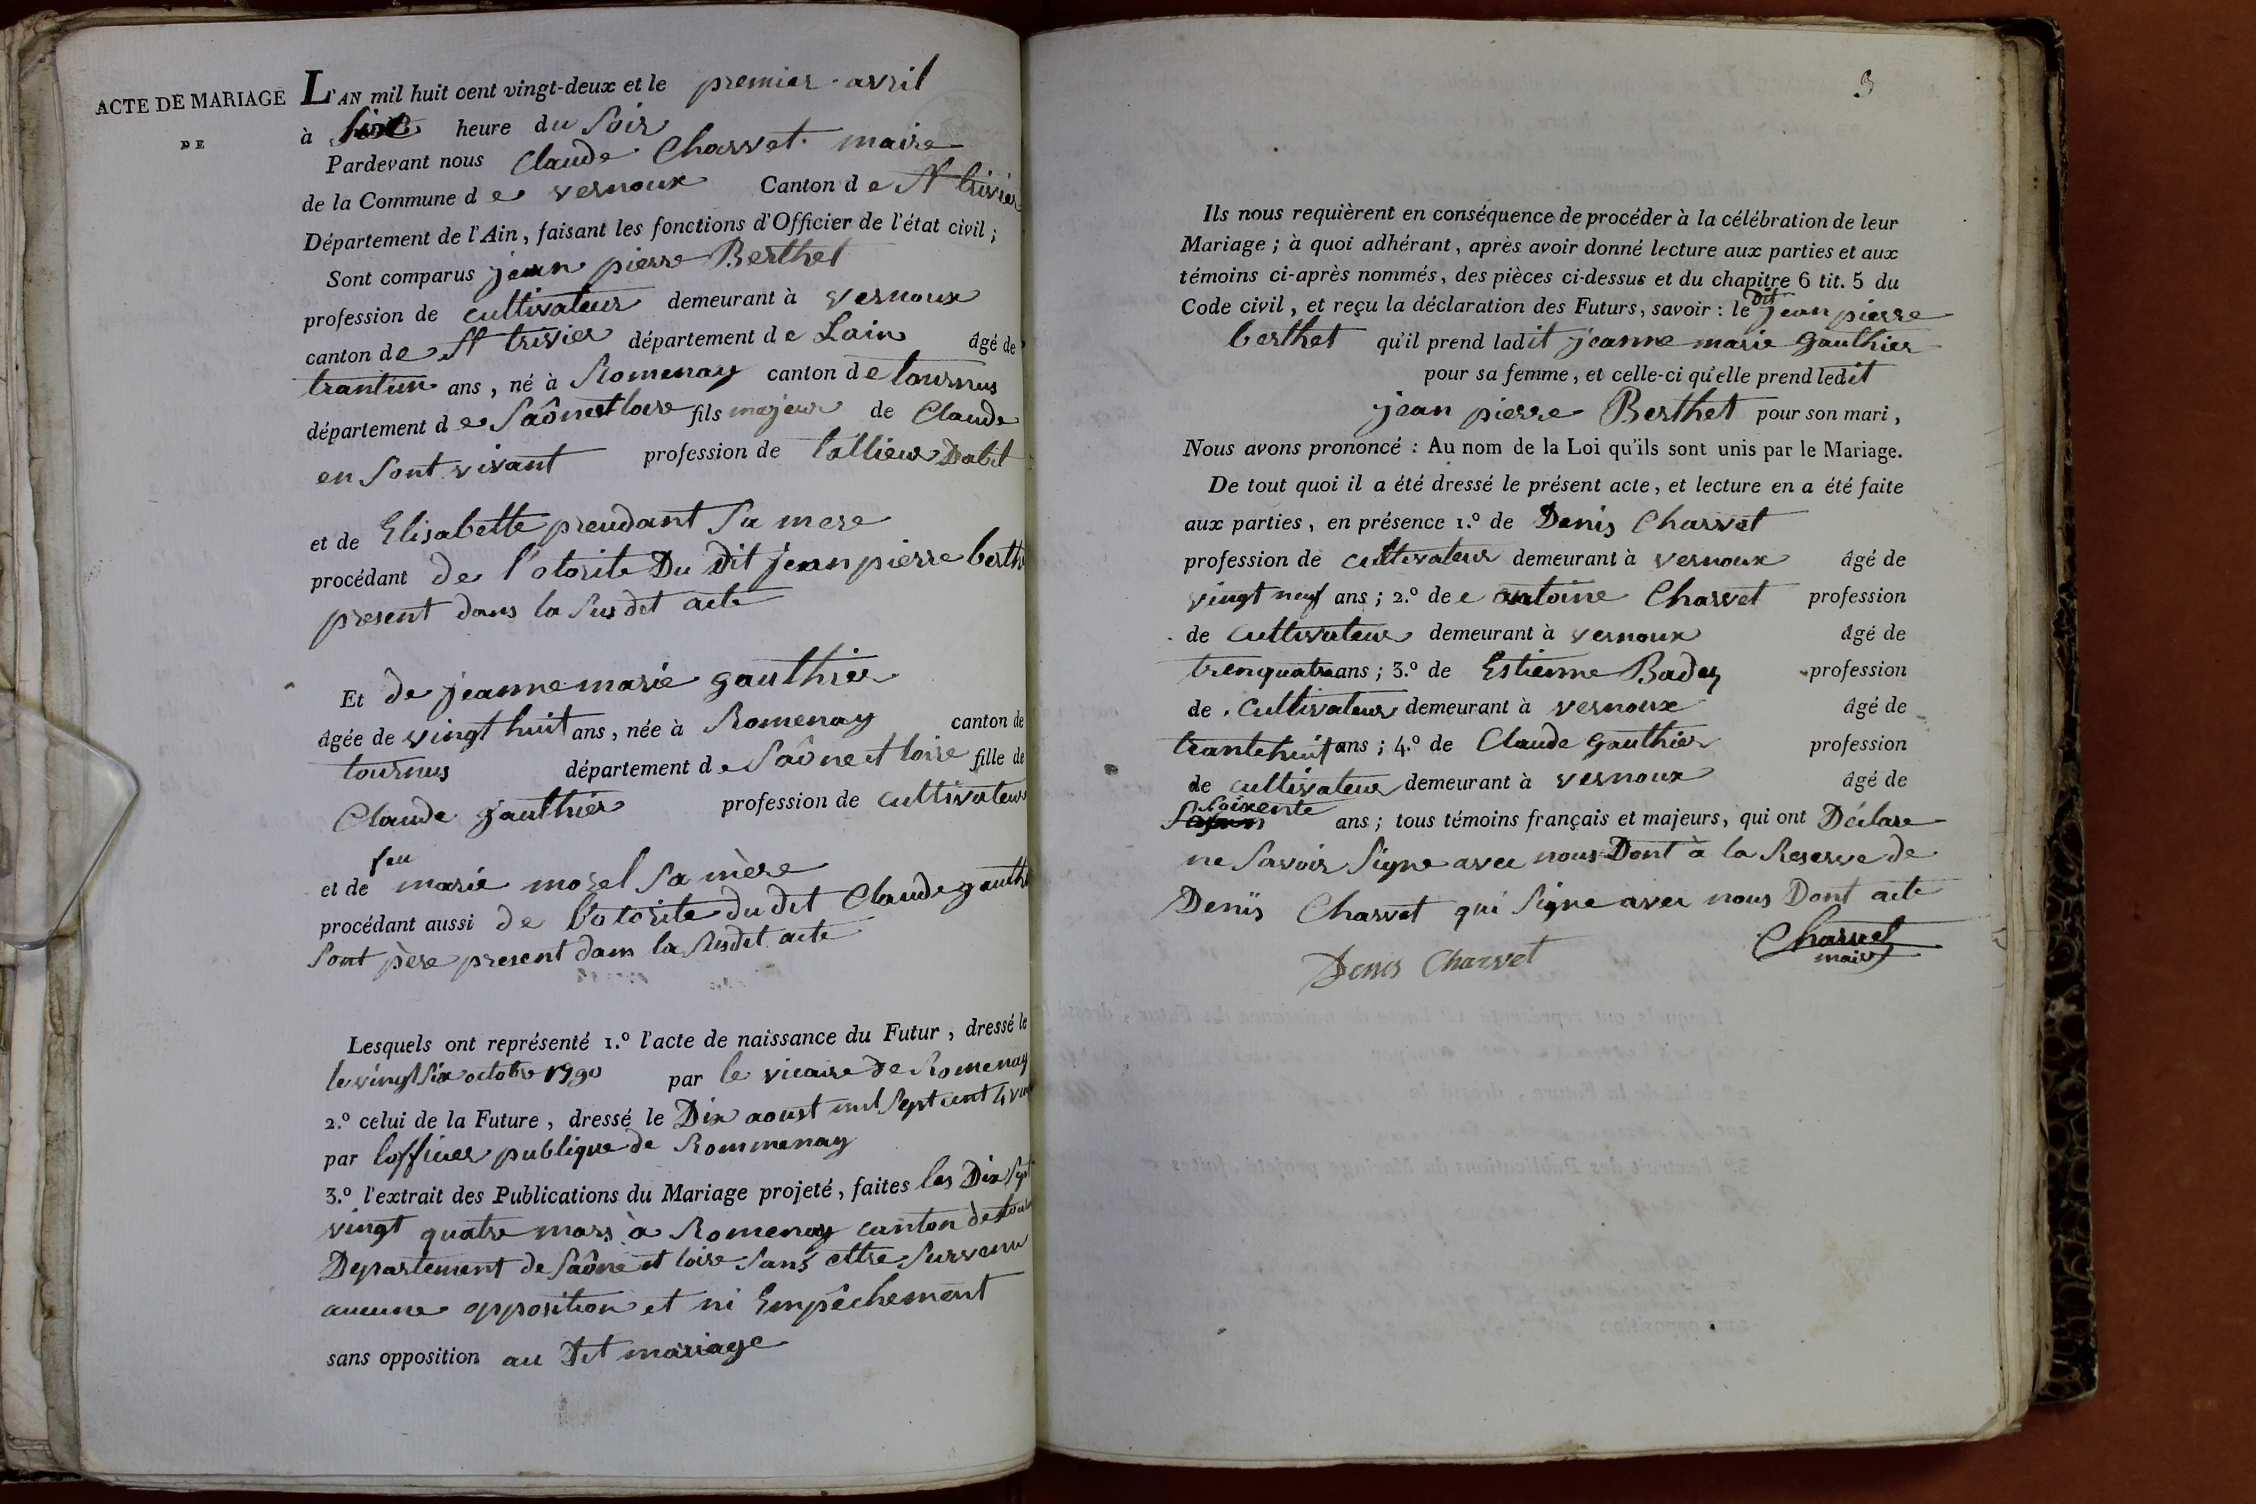 ACTE DE MARIAGE
DE
L'AN mil huit cent vingt-deux et le premier avril
à heure du soir
Pardevant nous Claude Charvet maire
de la Commune de vernoux Canton de St trivier
Département de l'Ain, faisant les fonctions d'Officier de l'état civil ;
Sont comparus jean pierre Berthet
profession de cultivateur demeurant à vernoux
canton de St trivier département de Lain âgé de
trantun ans, né à Romenay canton de tournus
département de Saône et loire fils majeur de Claude
en sont vivant profession de tallieur Dabit
et de Elisabette preudant sa mere
procédant de l'otorite Du Dit jean pierre berth
present dans la susdit acte
Et de jeanne marie gauthier
âgée de vingt huit ans, née à Romenay canton de
tournus département de Saône et loire fille de
Claude gauthier profession de cultivateur
feu
et de marie morel sa mère
procédant aussi de l'otorite du dit Claude gauth
sont père present dans la susdit acte
Lesquels ont représenté 1.º l'acte de naissance du Futur, dressé le
le vingt six octobre 1790 par le vicaire de Romenay
2.º celui de la Future, dressé le Dix aoust mil sept cent 4 vin
par lofficier publique de Rommenay
3.º l'extrait des Publications du Mariage projeté, faites les Dix sept
vingt quatre mars à Romenay canton de tour
Departement de Saône et loire sans ettre survenu
aucune opposition et ni Empêchement
sans opposition au Dit mariage
3
Ils nous requièrent en conséquence de procéder à la célébration de leur
Mariage ; à quoi adhérant, après avoir donné lecture aux parties et aux
témoins ci-après nommés, des pièces ci-dessus et du chapitre 6 tit. 5 du
Code civil, et reçu la déclaration des Futurs, savoir : le Dit jean pierre
berthet qu'il prend ladit jeanne marie gauthier
pour sa femme, et celle-ci qu'elle prend ledit
jean pierre Berthet pour son mari,
Nous avons prononcé : Au nom de la Loi qu'ils sont unis par le Mariage.
De tout quoi il a été dressé le présent acte, et lecture en a été faite
aux parties, en présence 1.º de Denis Charvet
profession de cultivateur demeurant à vernoux âgé de
vingt neuf ans ; 2.º de antoine Charvet profession
de cultivateur demeurant à vernoux âgé de
trenquatre ans ; 3.º de Estienne Badey profession
de cultivateur demeurant à vernoux âgé de
trantehuit ans ; 4.º de Claude gauthier profession
de cultivateur demeurant à vernoux âgé de
soixente ans ; tous témoins français et majeurs, qui ont Déclare
ne savoir signe avec nous Dont à la Reserve de
Denis Charvet qui signe avec nous Dont acte
Denis Charvet
Charvet
maire